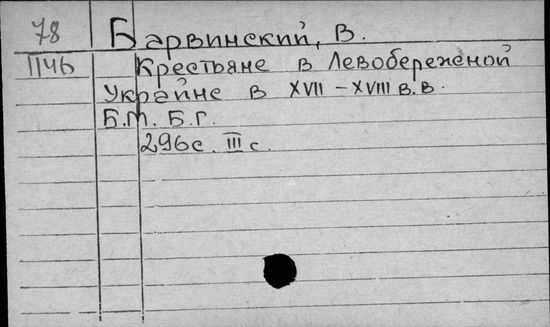 78 Барвинский, В.
1146 Крестьяне в Левобережной
Украйне в XVII – XVIII в.в.
Б.М. Б.Г.
296с. III с.